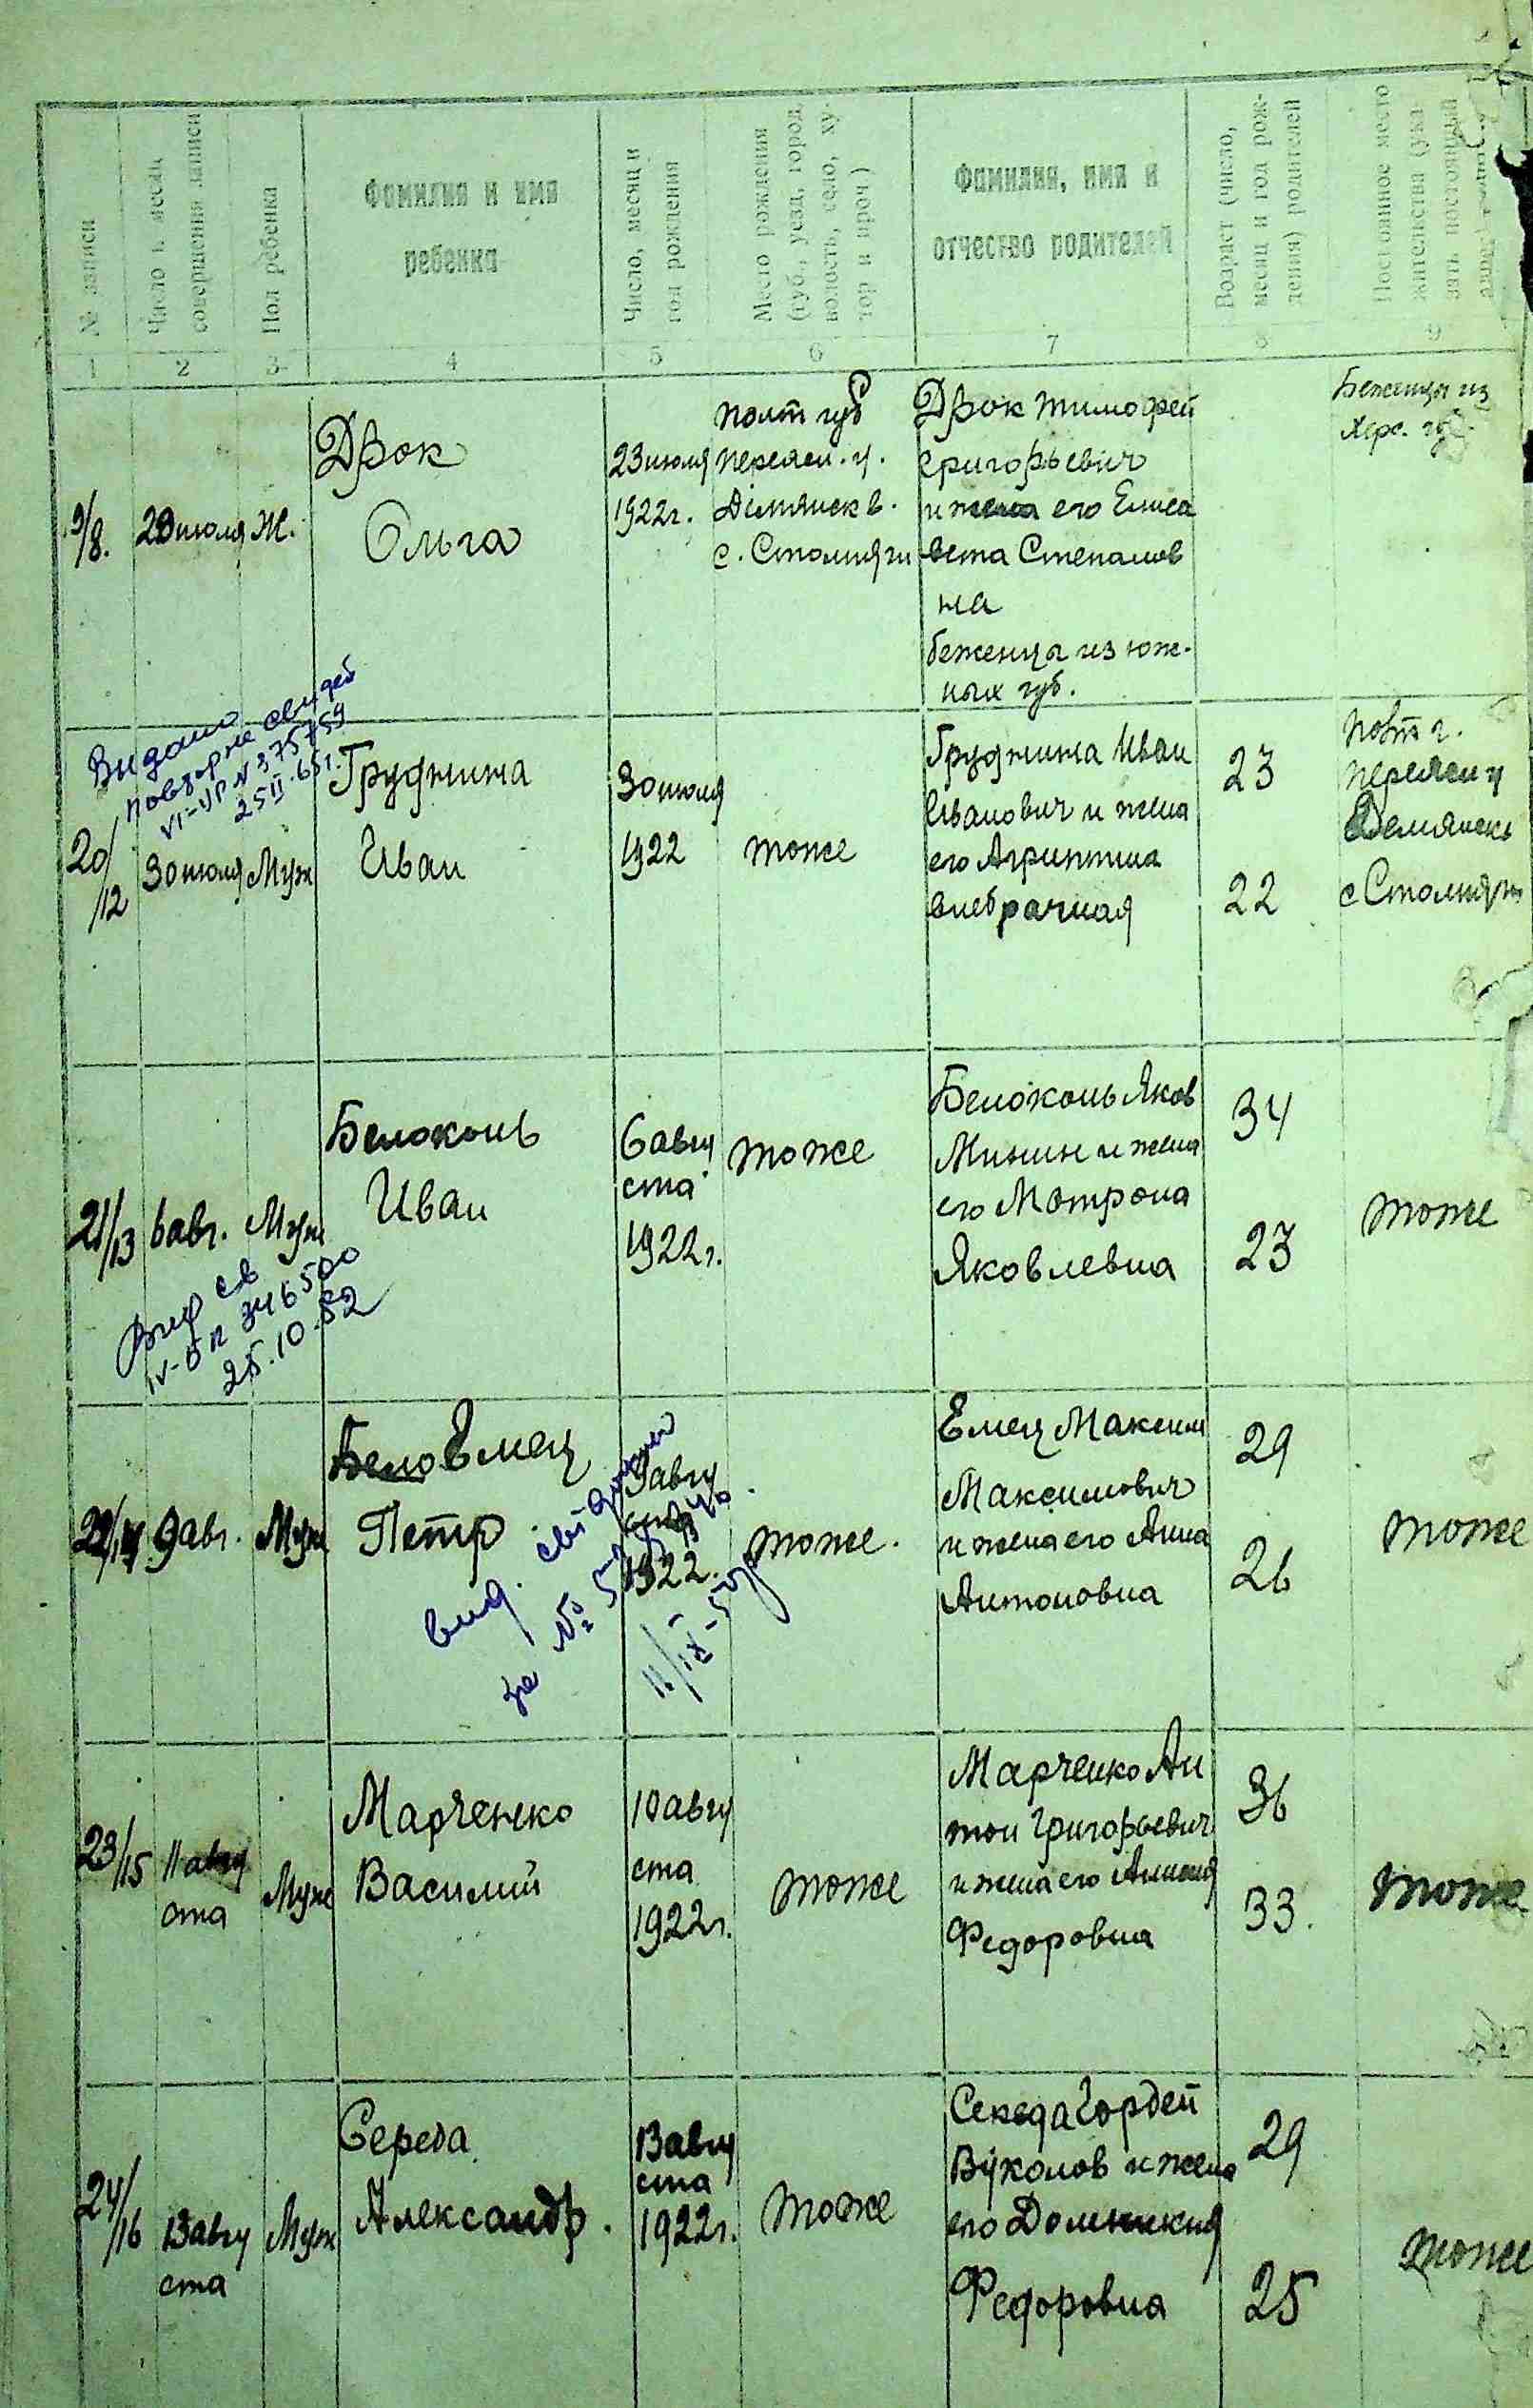 № записи
Число и месяц
совершения записи
Пол ребенка
Фамилия и имя
ребенка
Число, месяц и
год рождения
Место рождения
(губ., уезд, город,
волость, село, ху-
тор и проч.)
Фамилия, имя и
отчество родителей
Возраст (число,
месяц и год рож-
дения) родителей
Постоянное место
жительства (ука-
зать постоянный
1
2
3
4
5
6
7
8
9
9/8.
29 июля
Ж.
Дрок
Ольга
23 июля
1922г.
Полт губ
Переясл. у.
с. Столняги
Дрок Тимофей
Григорьевич
и жена его Елиса
вета Степанов
на
беженцы из юж-
ных губ.
Беженцы из
Хер. губ.
Видано
повторне свидоц
VI-УР N 375759
25 II.65г.
20/12
30 июля
Муж
Груднина
Иван
30 июля
1922
тоже
Груднина Иван
Иванович и жена
его Агриппина
внебрачная
23
22
Полт г.
Переясл у
с Столняги
21/13
6 авг.
Муж
Белоконь
Иван
6 авгу
ста
1922г.
тоже
Белоконь Яков
Минин и жена
его Мотрона
Яковлевна
34
23
тоже
Вид св
25.10.52
22/14
9 авг.
Муж
Бело Емец
Петр
9 авгу
ста
1922.
тоже.
Емец Максим
Максимович
и жена его Анна
Антоновна
29
26
тоже
вид.
за №
11/IX-
23/15
11 авгу
ста
Муж
Марченко
Василий
10 авгу
ста
1922г.
тоже
Марченко Ан
тон Григорьевич
и жена его
Федоровна
36
33.
тоже
24/16
13 авгу
ста
Муж
Середа
Александр.
13 авгу
ста
1922г.
тоже
Гордей
Вуколов и жена
его Домникия
Федоровна
29
25
тоже